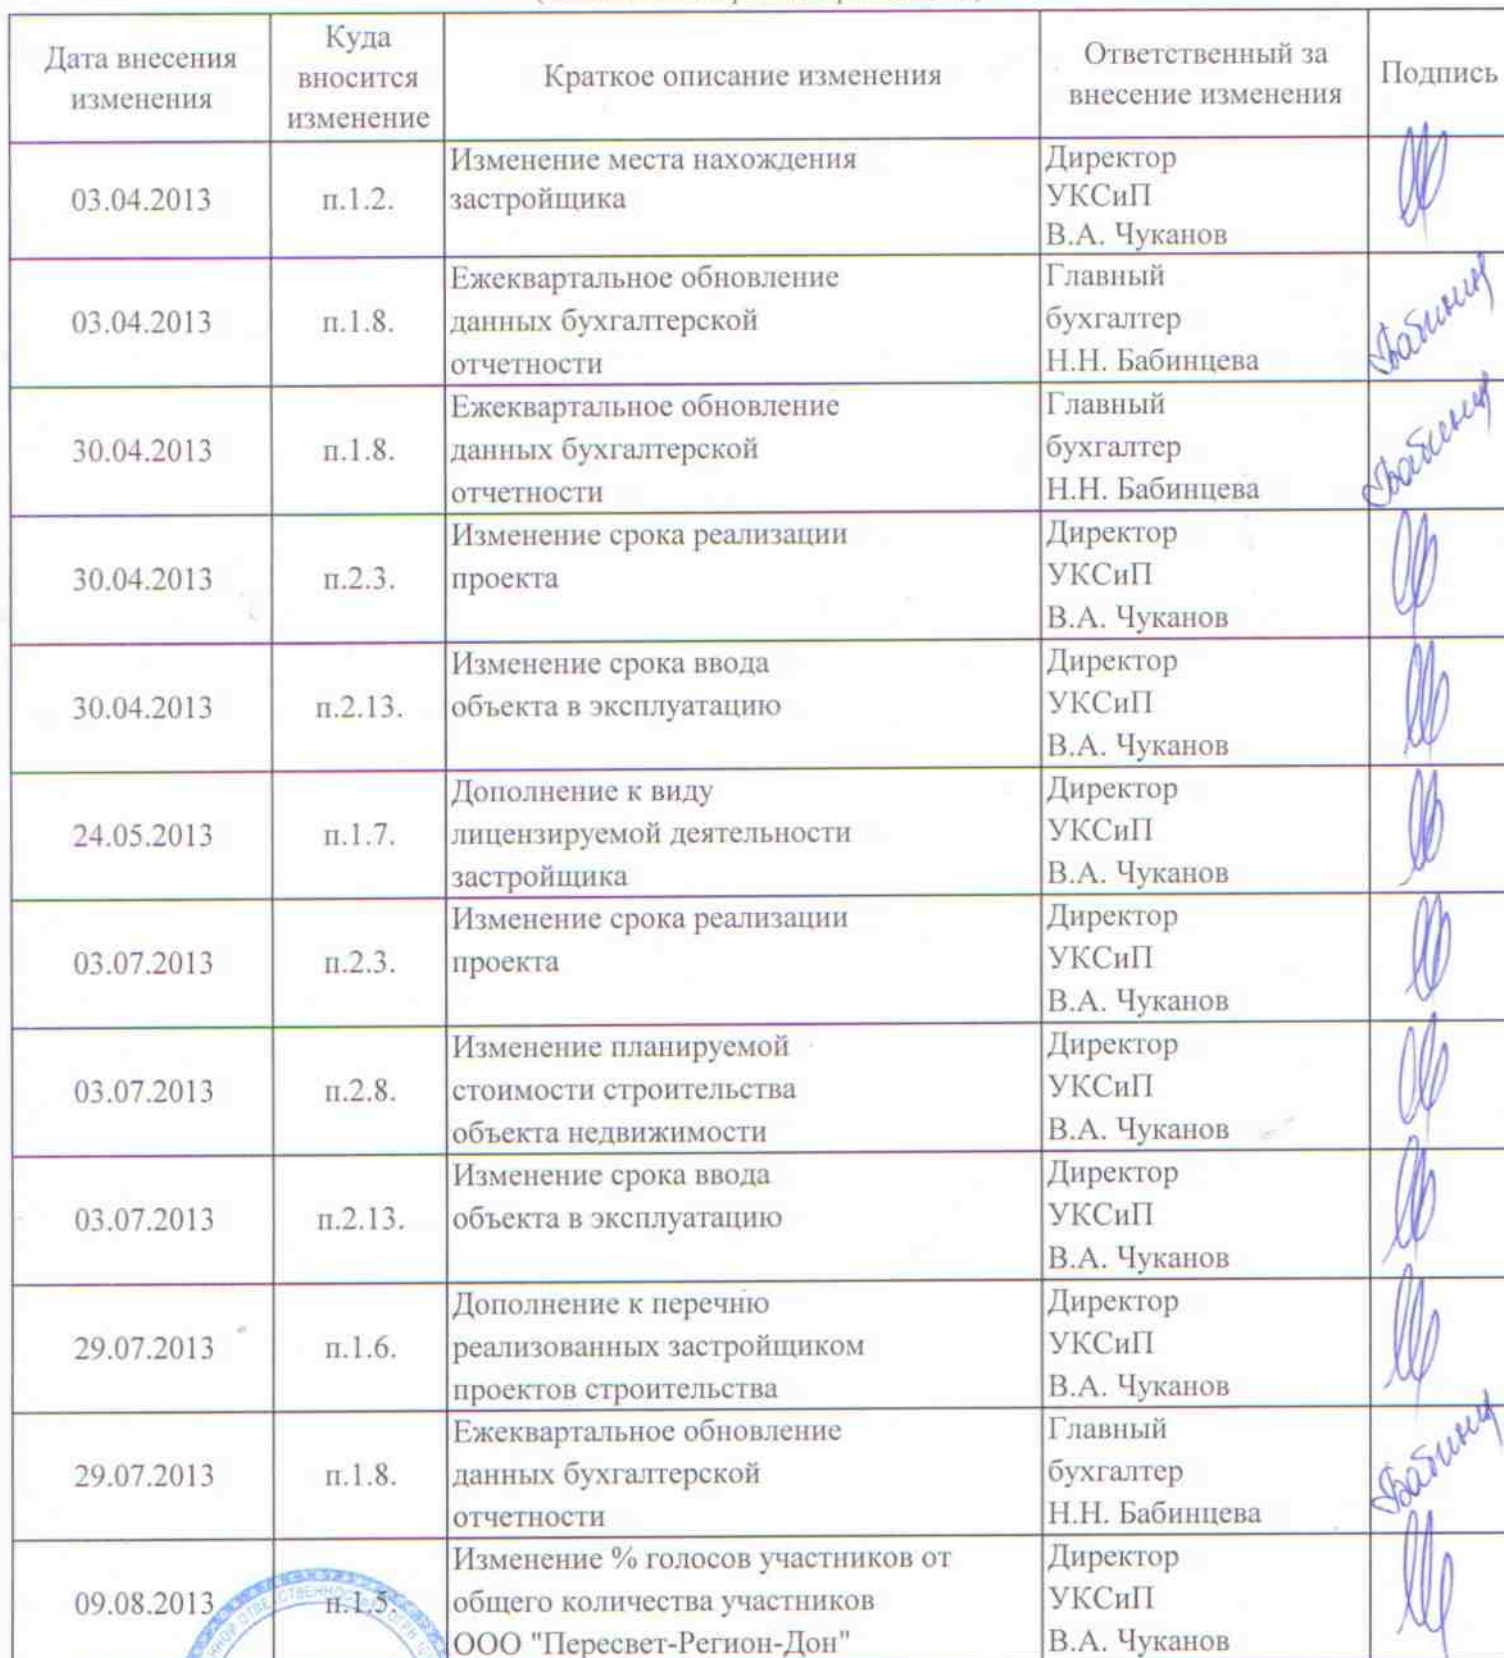 Дата внесения
изменения
Куда
вносится
изменение
Краткое описание изменения
Ответственный за
внесение изменения
Подпись
03.04.2013
п.1.2.
Изменение места нахождения
застройщика
Директор
УКСиП
В.А. Чуканов
03.04.2013
п.1.8.
Ежеквартальное обновление
данных бухгалтерской
отчетности
Главный
бухгалтер
Н.Н. Бабинцева
30.04.2013
п.1.8.
Ежеквартальное обновление
данных бухгалтерской
отчетности
Главный
бухгалтер
Н.Н. Бабинцева
30.04.2013
п.2.3.
Изменение срока реализации
проекта
Директор
УКСиП
В.А. Чуканов
30.04.2013
п.2.13.
Изменение срока ввода
объекта в эксплуатацию
Директор
УКСиП
В.А. Чуканов
24.05.2013
п.1.7.
Дополнение к виду
лицензируемой деятельности
застройщика
Директор
УКСиП
В.А. Чуканов
03.07.2013
п.2.3.
Изменение срока реализации
проекта
Директор
УКСиП
В.А. Чуканов
03.07.2013
п.2.8.
Изменение планируемой
стоимости строительства
объекта недвижимости
Директор
УКСиП
В.А. Чуканов
03.07.2013
п.2.13.
Изменение срока ввода
объекта в эксплуатацию
Директор
УКСиП
В.А. Чуканов
29.07.2013
п.1.6.
Дополнение к перечню
реализованных застройщиком
проектов строительства
Директор
УКСиП
В.А. Чуканов
29.07.2013
п.1.8.
Ежеквартальное обновление
данных бухгалтерской
отчетности
Главный
бухгалтер
Н.Н. Бабинцева
09.08.2013
п.1.5.
Изменение % голосов участников от
общего количества участников
ООО "Пересвет-Регион-Дон"
Директор
УКСиП
В.А. Чуканов